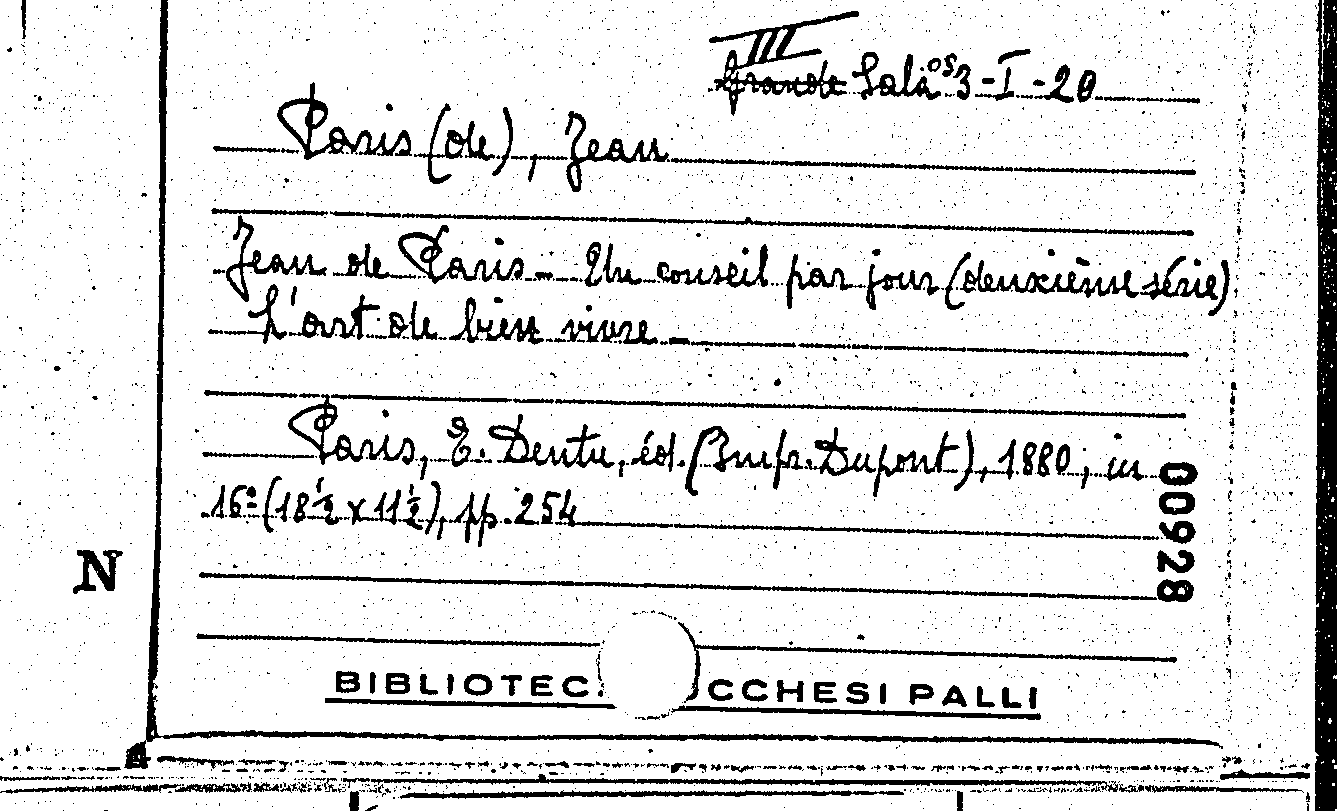 III
Grande Sala os 3-I-20
Paris (de), Jean
Jean de Paris - Un conseil par jour (deuxième série)
L'art de bien vivre -
Paris, E. Dentu, éd. (Impr. Dupont), 1880, in
16º (18½ x 11½), pp. 254
00928
N
BIBLIOTEC UCCHESI PALLI